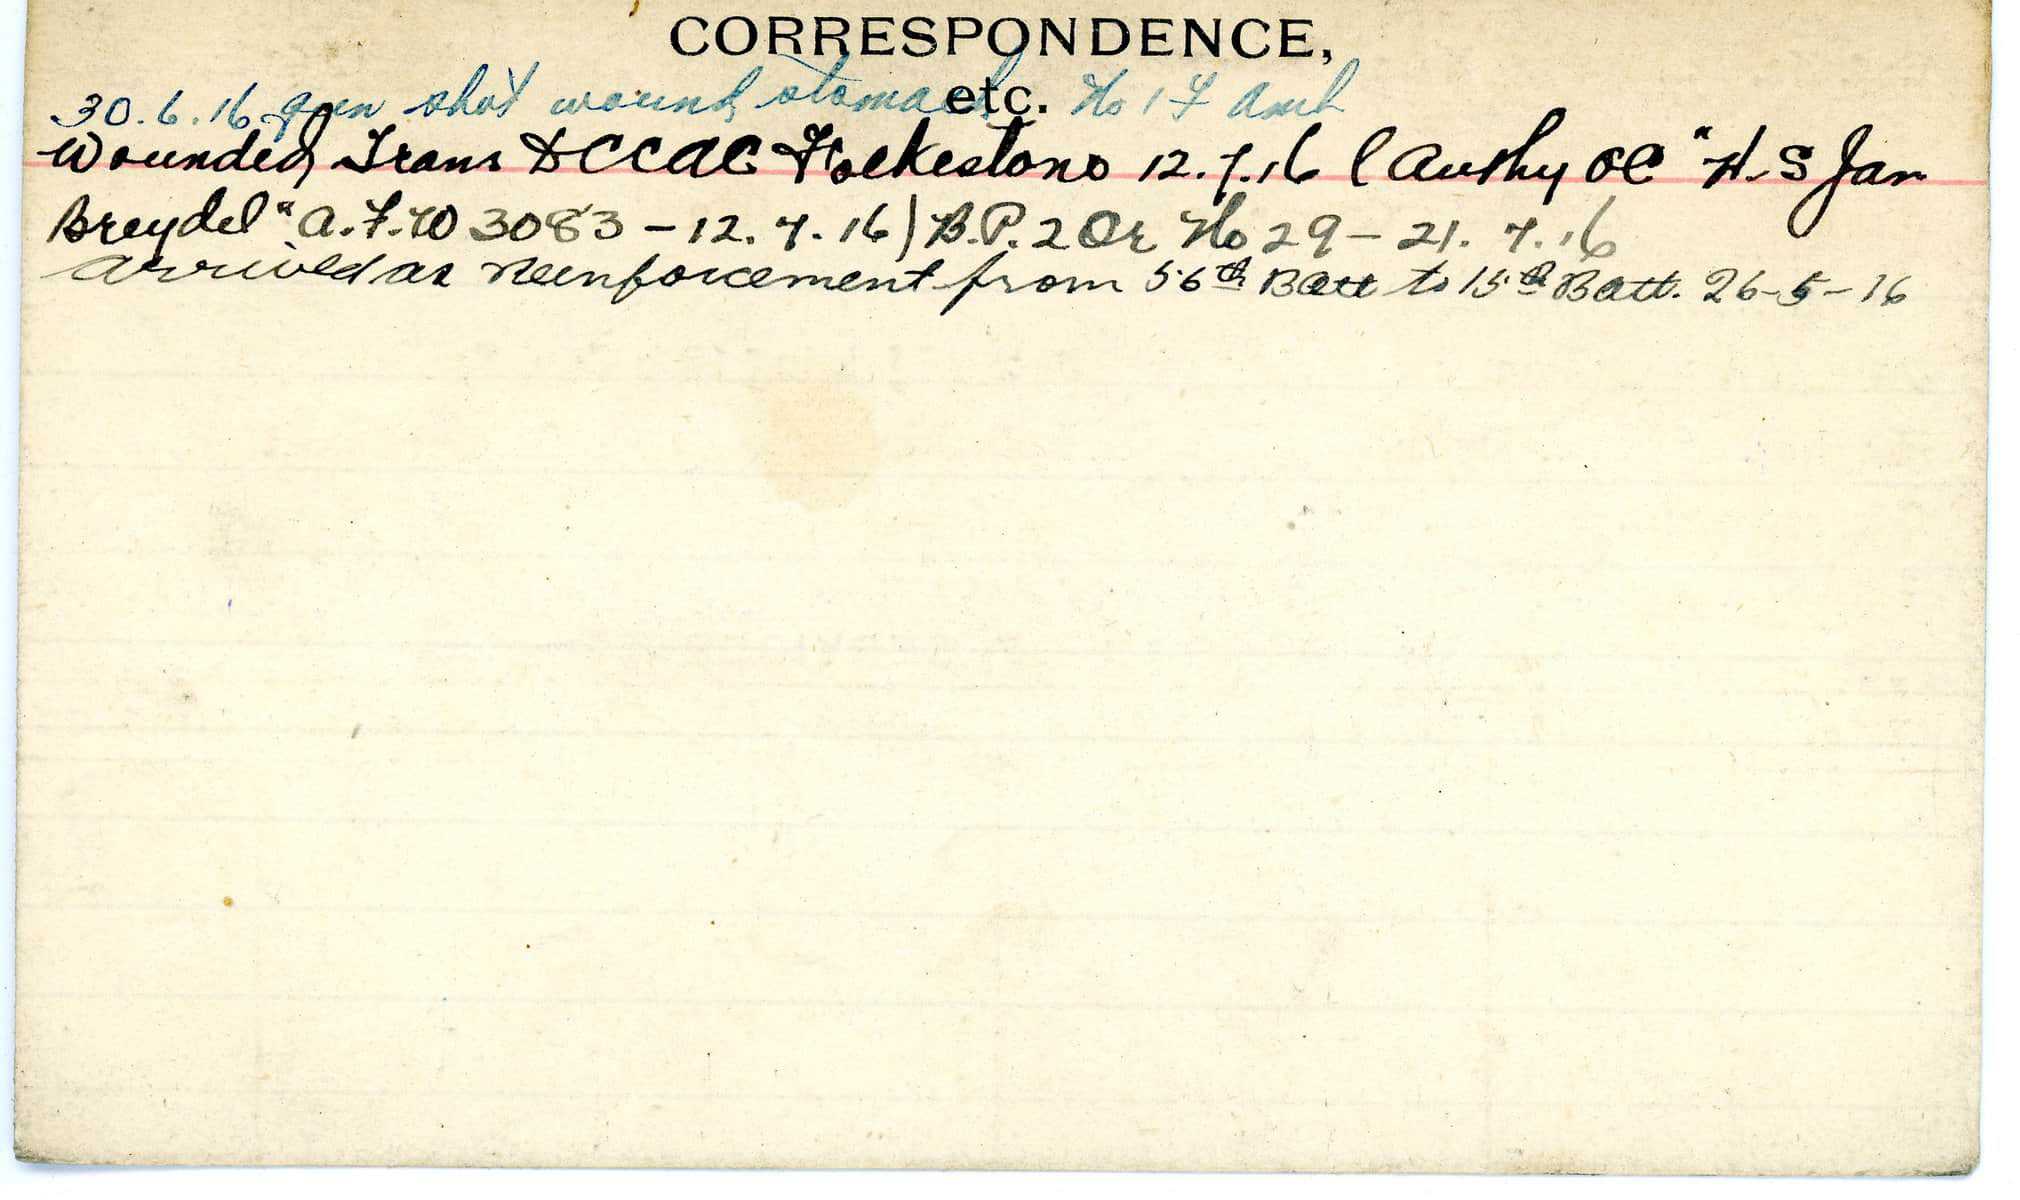 CORRESPONDENCE,
etc.
30.6.16 gun shot wound stomach No 1 F Amb
Wounded Trans to CCAC Folkestone 12.7.16 (Authy OC "H.S Jan
Breydel" A.F.W 3083 - 12.7.16) B.P. 2 Or No 29 - 21.7.16
Arrived as Reinforcement from 56th Batt to 15th Batt. 26-5-16